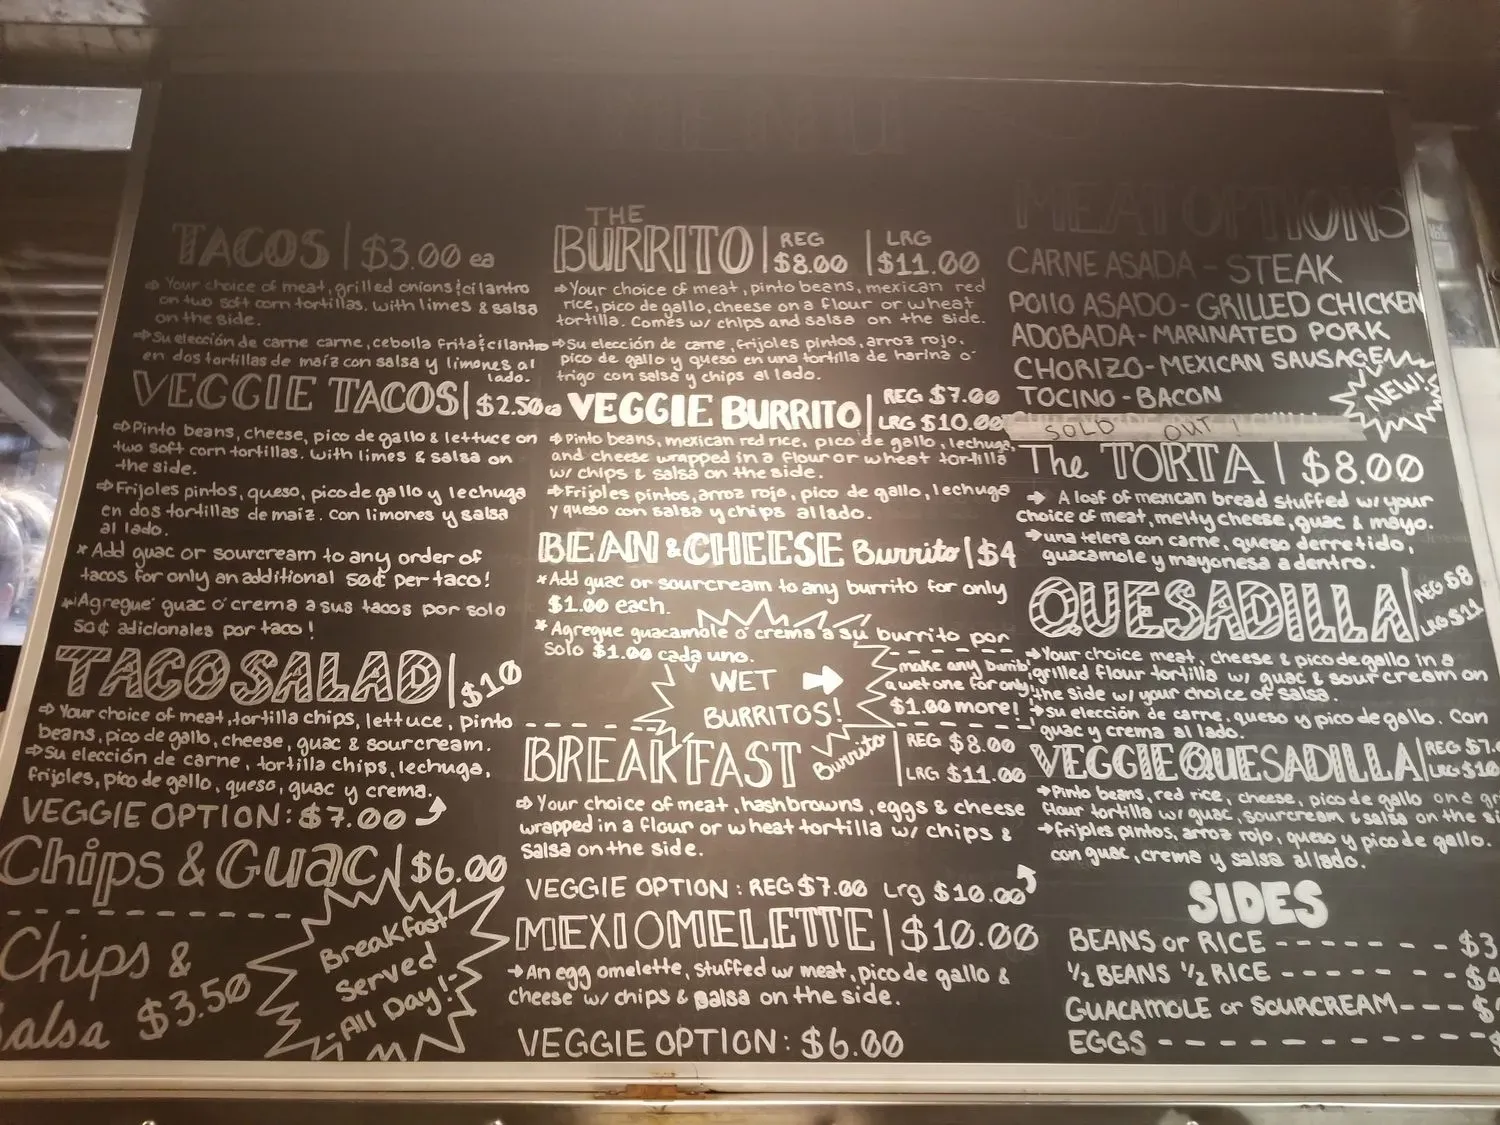 MENU
TACOS | $3.00 ea
Your choice of meat, grilled onions & cilantro
on two soft corn tortillas. with limes & salsa
on the side.
Su elección de carne carne, cebolla frita & cilantro
en dos tortillas de maíz con salsa y limones al
lado.
VEGGIE TACOS | $2.50 ea
Pinto beans, cheese, pico de gallo & lettuce on
two soft corn tortillas. with limes & salsa on
the side.
Frijoles pintos, queso, pico de gallo y lechuga
en dos tortillas de maiz. con limones y salsa
al lado.
* Add guac or sourcream to any order of
tacos for only an additional 50¢ per taco!
* Agregue guac ó crema a sus tacos por solo
50¢ adicionales por taco!
TACO SALAD | $10
Your choice of meat, tortilla chips, lettuce, pinto
beans, pico de gallo, cheese, guac & sourcream.
Su elección de carne, tortilla chips, lechuga,
frijoles, pico de gallo, queso, guac y crema.
VEGGIE OPTION: $7.00
Chips & Guac | $6.00
Chips &
Salsa $3.50
Breakfast
Served
-All Day!-
THE
BURRITO | REG $8.00 | LRG $11.00
Your choice of meat, pinto beans, mexican red
rice, pico de gallo, cheese on a flour or wheat
tortilla. Comes w/ chips and salsa on the side.
Su elección de carne, frijoles pintos, arroz rojo,
pico de gallo y queso en una tortilla de harina o
trigo con salsa y chips al lado.
VEGGIE BURRITO | REG $7.00
LRG $10.00
Pinto beans, mexican red rice, pico de gallo, lechuga,
and cheese wrapped in a flour or wheat tortilla
w/ chips & salsa on the side.
Frijoles pintos, arroz rojo, pico de gallo, lechuga
y queso con salsa y chips al lado.
BEAN & CHEESE Burrito | $4
* Add guac or sourcream to any burrito for only
$1.00 each.
* Agregue guacamole ó crema a su burrito por
solo $1.00 cada uno.
WET
BURRITOS!
make any burrito
a wet one for only
$1.00 more!
BREAKFAST Burrito | REG $8.00
LRG $11.00
Your choice of meat, hashbrowns, eggs & cheese
wrapped in a flour or wheat tortilla w/ chips &
salsa on the side.
VEGGIE OPTION: REG $7.00 Lrg $10.00
MEXI OMELETTE | $10.00
An egg omelette, stuffed w/ meat, pico de gallo &
cheese w/ chips & salsa on the side.
VEGGIE OPTION: $6.00
MEAT OPTIONS
CARNE ASADA - STEAK
POllO ASADO - GRILLED CHICKEN
ADOBADA - MARINATED PORK
CHORIZO - MEXICAN SAUSAGE
TOCINO - BACON
NEW!
SOLD OUT!
The TORTA | $8.00
A loaf of mexican bread stuffed w/ your
choice of meat, melty cheese, guac & mayo.
una telera con carne, queso derretido,
guacamole y mayonesa adentro.
QUESADILLA | REG $8
LRG $11
Your choice meat, cheese & pico de gallo in a
grilled flour tortilla w/ guac & sour cream on
the side w/ your choice of salsa.
Su elección de carne, queso y pico de gallo. Con
guac y crema al lado.
VEGGIE QUESADILLA | REG $7.
LRG $10
Pinto beans, red rice, cheese, pico de gallo on a
flour tortilla w/ guac, sourcream & salsa on the
frijoles pintos, arroz rojo, queso y pico de gallo.
con guac, crema y salsa al lado.
SIDES
BEANS or RICE - - - - - - - - $3
½ BEANS ½ RICE - - - - - - - $4
GUACAMOLE or SOURCREAM - - - $
EGGS - - - - - - - - - - - - $